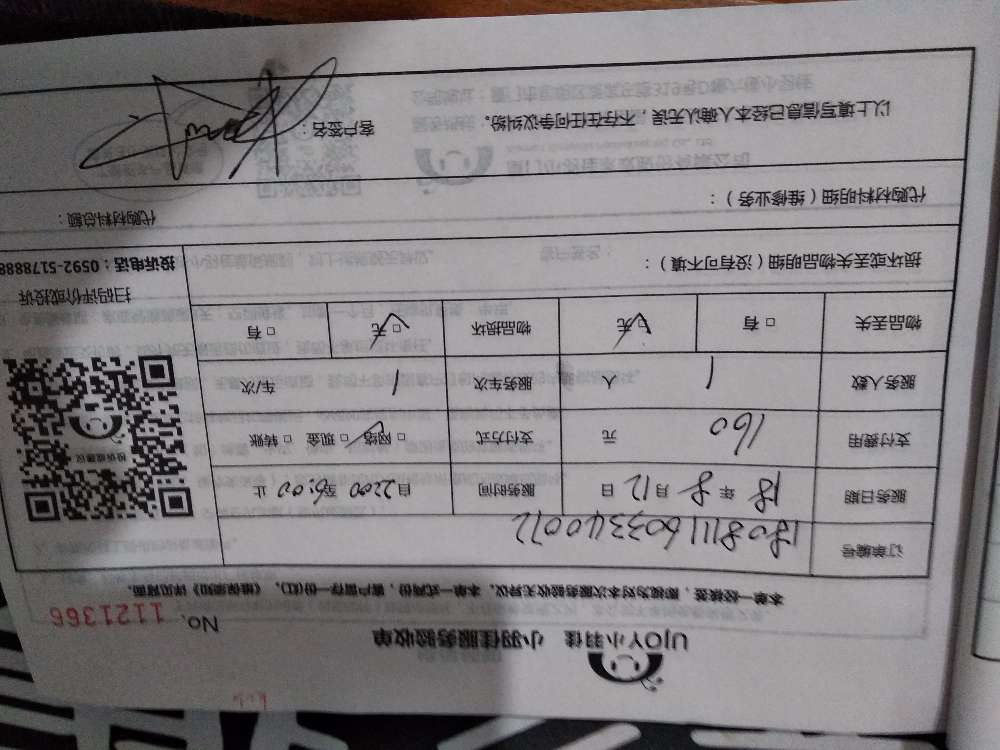 UJOY小羽佳 小羽佳服务验收单
No. 1121366
本单一经接签，即视为对本次服务验收无异议，本单一式两份，客户留存一份(红)，《维保须知》详见背面。
订单编号 180811160334
服务日期 18 年 8 月 12 日 服务时间 自 至 止
支付费用 160 元 支付方式 □网络 □现金 □转账
服务人数 1 人 服务车次 1 车/次
物品丢失 □有 □无 物品损坏 □无 □有
损坏或丢失物品明细（没有可不填）：
扫码评价或投诉
投诉电话：0592-5178888
代购材料明细（维修业务）：
代购材料总额：
以上填写信息已经本人确认无误，不存在任何争议纠纷。
客户签名：